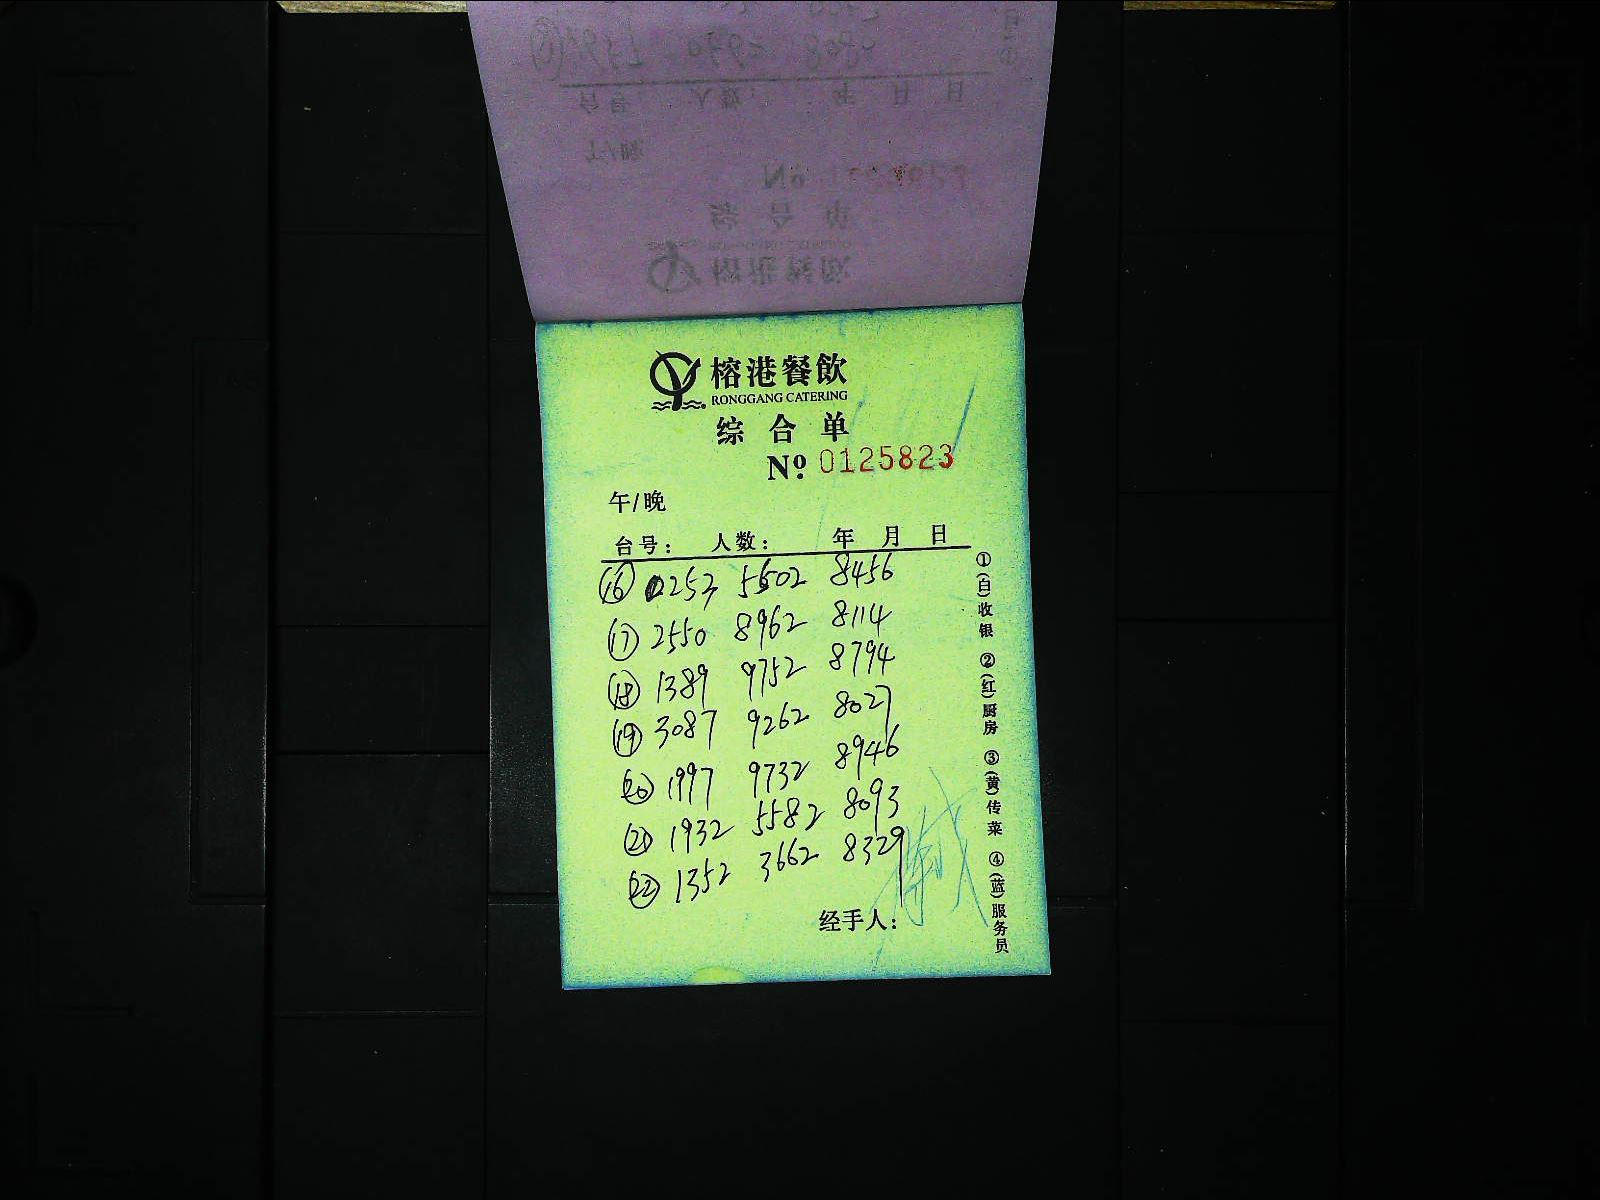 榕港餐飲
RONGGANG CATERING
综合单
Nº 0125823
午/晚
台号： 人数： 年 月 日
⑯ 0252 5502 8456
⑰ 2550 8962 8114
⑱ 1389 9752 8794
⑲ 3087 9262 8027
⑳ 1997 9732 8946
㉑ 1932 5582 8093
㉒ 1352 3662 8329
经手人：
①(白)收银 ②(红)厨房 ③(黄)传菜 ④(蓝)服务员